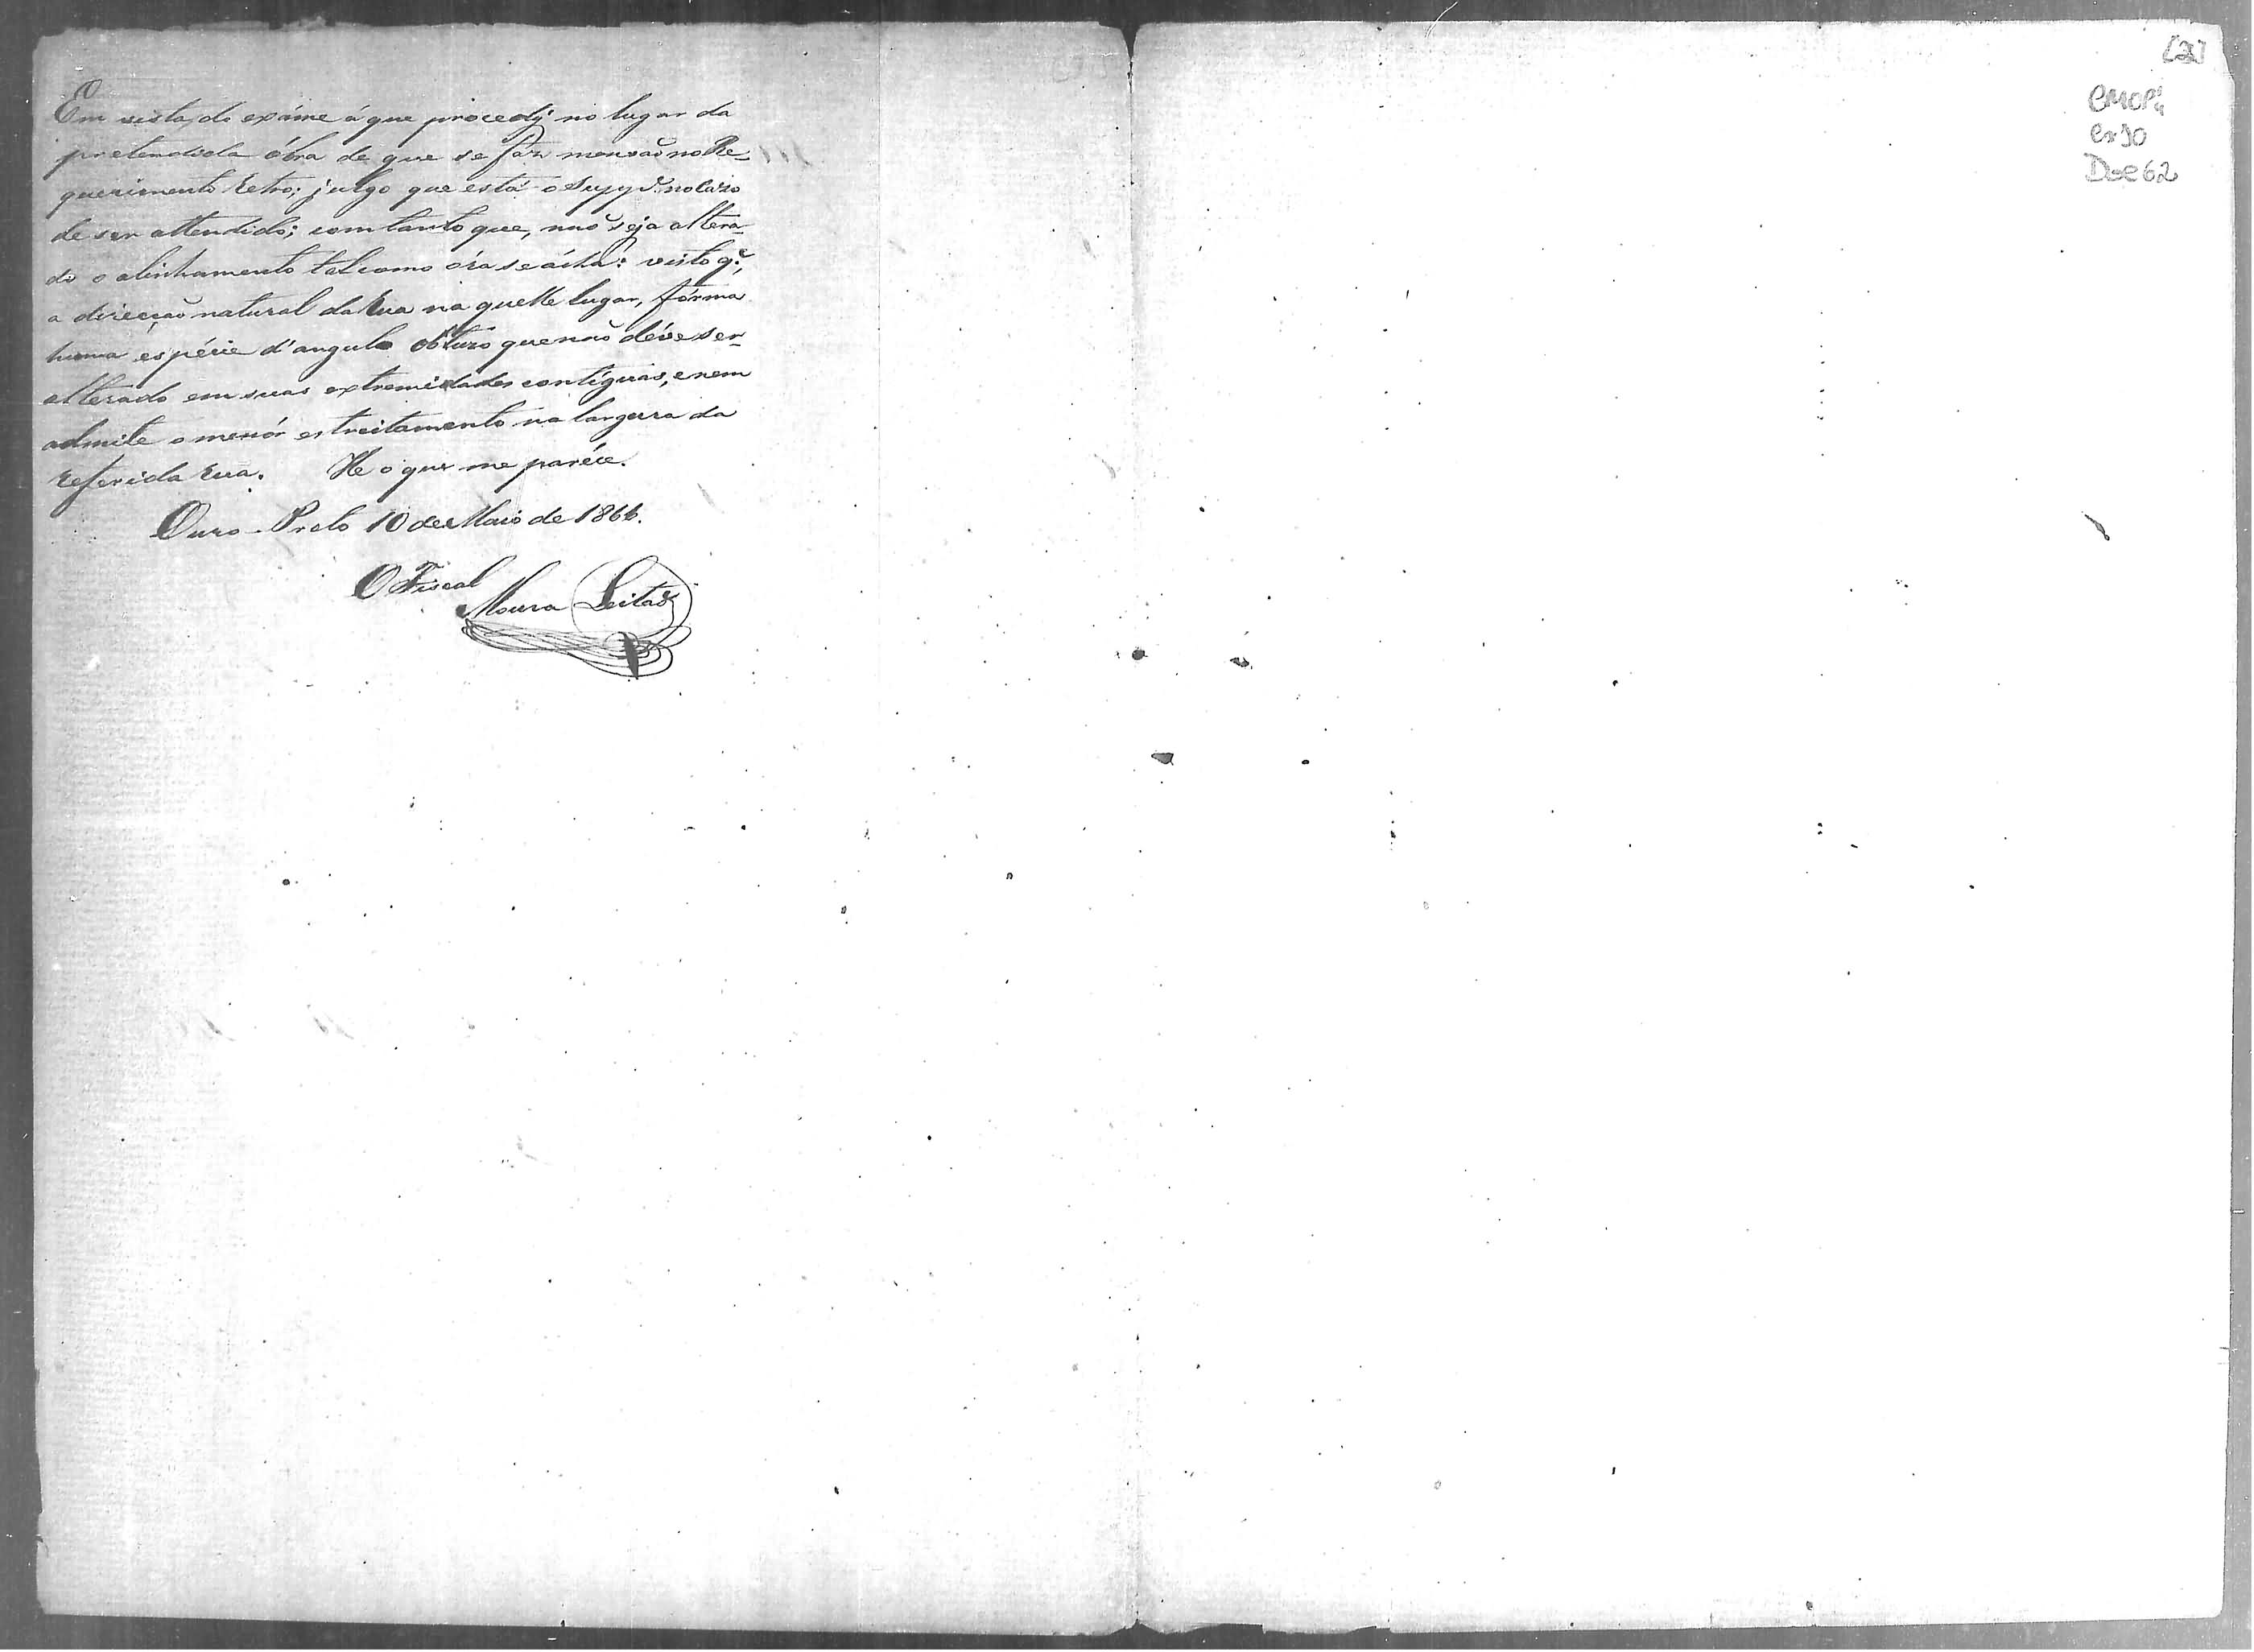 Em vista do exáme á que procedi no lugar da
pretendida óbra de que se faz mensaõ no Re-
querimento retro; julgo que está o Supp.e no cazo
de ser attendido; com tanto que, naõ seja altera-
do o alinhamento tal como óra se ácha: visto q.e,
a direcçaõ natural da rua na quelle lugar, fórma
huma espécie d'angulo obtuzo que naõ déve ser
alterado em suas extremidades contíguas, e nem
admite o menór estreitamento na largura da
referida rua. He o que me paréce.
Ouro-Preto 10 de Maio de 1866.
O Fiscal
Moura Leitaõ
[2]
CMOP
Cx90
Doc 62